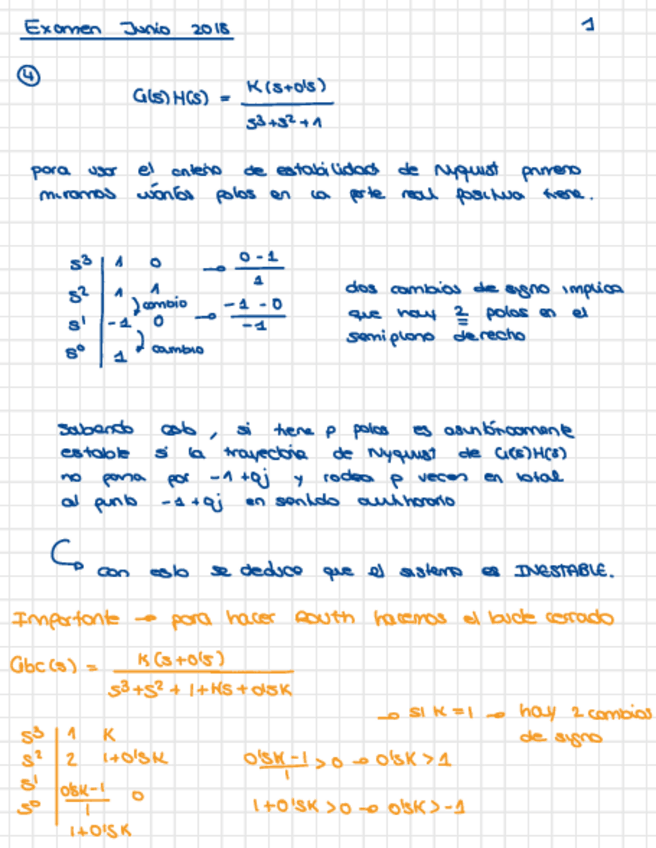 Examen Junio 2018
1
④
G(s)H(s) = K(s+0's) / s³+s²+1
para usar el criterio de estabilidad de Nyquist primero
miramos cuántos polos en la parte real positiva tiene.
s³ | 1 0 → 0-1 / 1
s² | 1 1
cambio
s¹ | -1 0 → -1-0 / -1
s⁰ | 1
cambio
dos cambios de signo implica
que hay 2 polos en el
semiplano derecho
Sabiendo esto, si tiene p polos es asintóticamente
estable si la trayectoria de Nyquist de G(s)H(s)
no pasa por -1+0j y rodea p veces en total
al punto -1+0j en sentido antihorario
↳ con esto se deduce que el sistema es INESTABLE.
Importante → para hacer Routh hacemos el bucle cerrado
Gbc(s) = K(s+0's) / s³+s²+1+Ks+0'sK
→ si K=1 → hay 2 cambios
de signo
s³ | 1 K
s² | 2 1+0'5K
s¹ | 0'5K-1 / 1 0
s⁰ | 1+0'5K
0'5K-1 / 1 >0 → 0'5K>1
1+0'5K>0 → 0'5K>-1